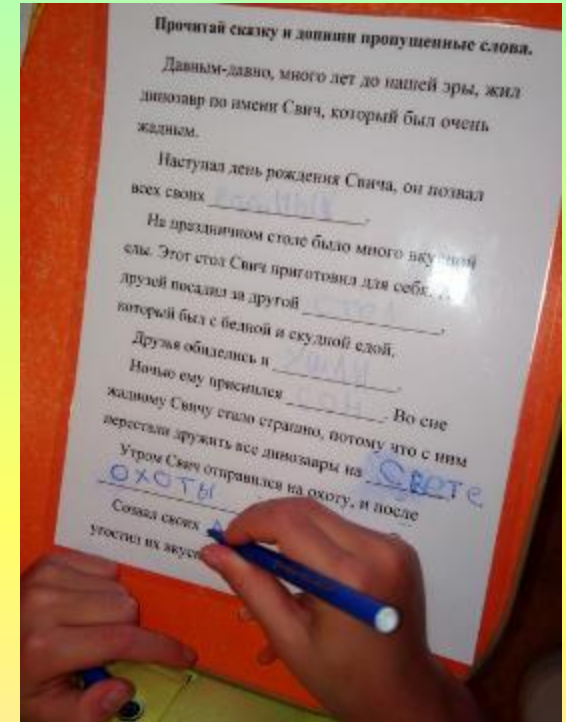 Прочитай сказку и допиши пропущенные слова.
Давным-давно, много лет до нашей эры, жил
динозавр по имени Свич, который был очень
жадным.
Наступал день рождения Свича, он позвал
всех своих
На праздничном столе было много вкусной
еды. Этот стол Свич приготовил для себя.
друзей посадил за другой
который был с бедной и скудной едой.
Друзья обиделись и
Ночью ему приснился . Во сне
жадному Свичу стало страшно, потому что с ним
перестали дружить все динозавры на свете
Утром Свич отправился на охоту, и после
охоты
Созвал своих
угостил их